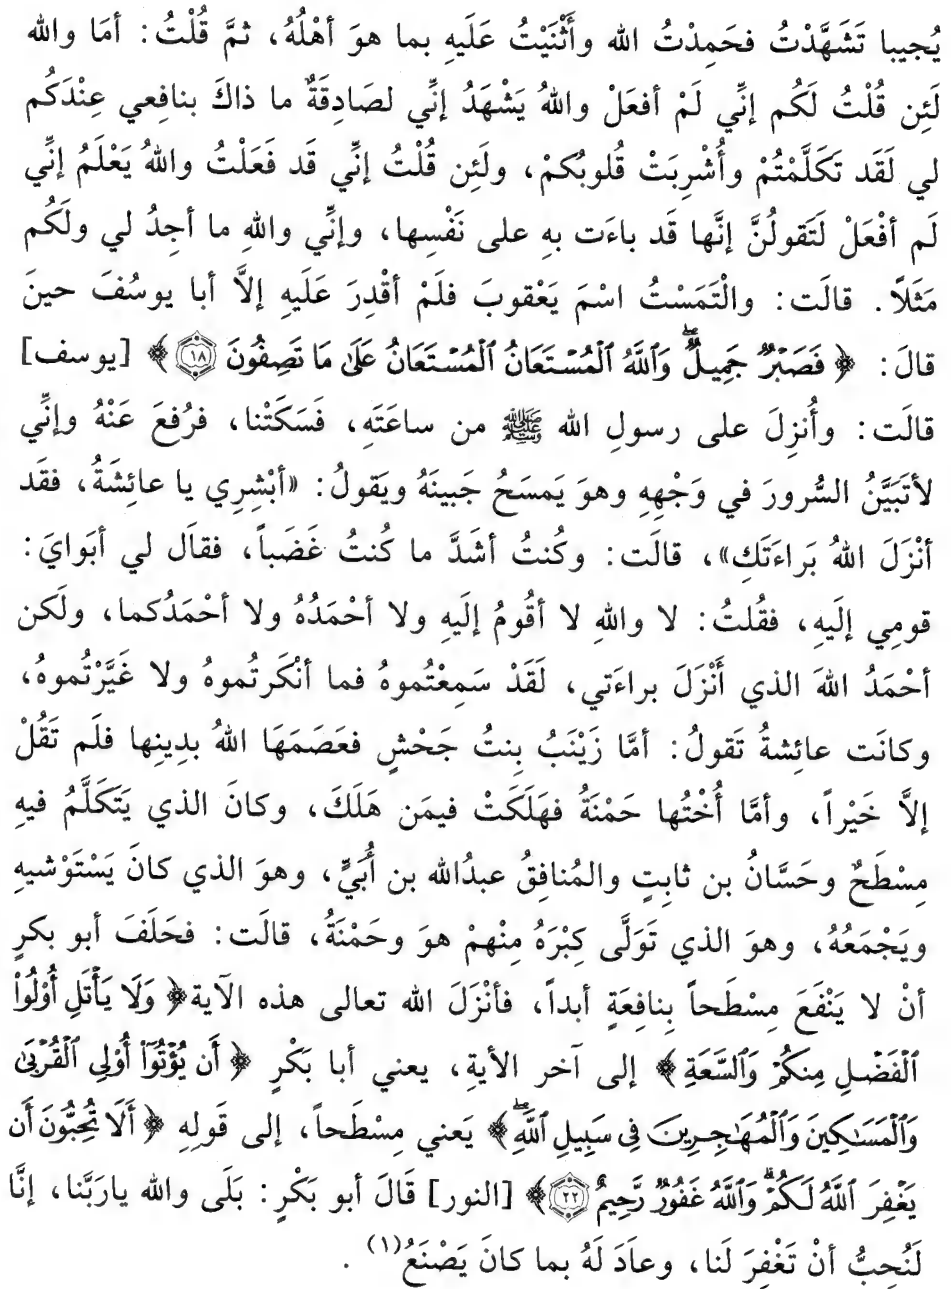 يُجيبا تَشَهَّدْتُ فحَمِدْتُ الله وأَثْنَيْتُ عَلَيهِ بما هوَ أهْلُهُ، ثمَّ قُلْتُ: أمَا والله
لَئِن قُلْتُ لَكُم إنِّي لَمْ أفعَلْ واللهُ يَشْهَدُ إنِّي لصَادِقَةٌ ما ذاكَ بنافِعي عِنْدَكُم
لي لَقَد تَكَلَّمْتُمْ وأُشْرِبَتْ قُلوبُكمْ، ولَئِن قُلْتُ إنِّي قَد فَعَلْتُ واللهُ يَعْلَمُ إنِّي
لَم أفْعَلْ لَتَقولُنَّ إنَّها قَد باءَت بهِ على نَفْسِها، وإنِّي واللهِ ما أجِدُ لي ولَكُم
مَثَلاً. قالَت: والْتَمَسْتُ اسْمَ يَعْقوبَ فلَمْ أقْدِرَ عَلَيهِ إلاَّ أبا يوسُفَ حينَ
قالَ: ﴿ فَصَبْرٌ جَمِيلٌ ۖ وَٱللَّهُ ٱلْمُسْتَعَانُ ٱلْمُسْتَعَانُ عَلَىٰ مَا تَصِفُونَ ۝١٨ ﴾ [يوسف]
قالَت: وأُنزِلَ على رسولِ الله ﷺ من ساعَتَهِ، فَسَكَتْنا، فرُفعَ عَنْهُ وإنِّي
لأتَبَيَّنُ السُّرورَ في وَجْهِهِ وهوَ يَمسَحُ جَبينَهُ ويَقولُ: «أبْشِرِي يا عائِشَةُ، فقَد
أنْزَلَ اللهُ بَراءَتَكِ»، قالَت: وكُنتُ أشَدَّ ما كُنتُ غَضَباً، فقاَل لي أبَوايَ:
قومِي إلَيهِ، فقُلتُ: لا واللهِ لا أقُومُ إلَيهِ ولا أحْمَدُهُ ولا أحْمَدُكما، ولَكن
أحْمَدُ اللهَ الذي أَنْزَلَ براءَتي، لَقَدْ سَمِعْتُموهُ فما أنْكَرتُموهُ ولا غَيَّرْتُموهُ،
وكانَت عائِشةُ تَقولُ: أمَّا زَيْنَبُ بِنتُ جَحْشٍ فعَصَمَهَا اللهُ بدِينِها فلَم تَقُلْ
إلاَّ خَيْراً، وأمَّا أُخْتُها حَمْنَةُ فهَلَكَتْ فيمَن هَلَكَ، وكانَ الذي يَتَكَلَّمُ فيهِ
مِسْطَحٌ وحَسَّانُ بن ثابِتٍ والمُنافِقُ عبدُالله بن أُبَيٍّ، وهوَ الذي كانَ يَسْتَوْشيهِ
ويَجْمَعُهُ، وهوَ الذي تَوَلَّى كِبْرَهُ مِنْهمْ هوَ وحَمْنَةُ، قالَت: فحَلَفَ أبو بكرٍ
أنْ لا يَنْفَعَ مِسْطَحاً بِنافِعَةٍ أبداً، فأنْزَلَ الله تعالى هذه الآية﴿ وَلَا يَأْتَلِ أُوْلُواْ
ٱلْفَضْلِ مِنكُمْ وَٱلسَّعَةِ ﴾ إلى آخر الأيةِ، يعني أبا بَكْرٍ ﴿ أَن يُؤْتُوٓاْ أُوْلِي ٱلْقُرْبَىٰ
وَٱلْمَسَٰكِينَ وَٱلْمُهَٰجِرِينَ فِي سَبِيلِ ٱللَّهِ ۖ﴾ يَعني مِسْطَحاً، إلى قَولِهِ ﴿ أَلَا تُحِبُّونَ أَن
يَغْفِرَ ٱللَّهُ لَكُمْ ۗ وَٱللَّهُ غَفُورٌ رَّحِيمٌ ۝٢٢﴾ [النور] قَالَ أبو بَكْرٍ: بَلَى والله ياربَّنا، إنَّا
لَنُحِبُّ أنْ تَغْفِرَ لَنا، وعاَدَ لَهُ بما كانَ يَصْنَعُ(١) .